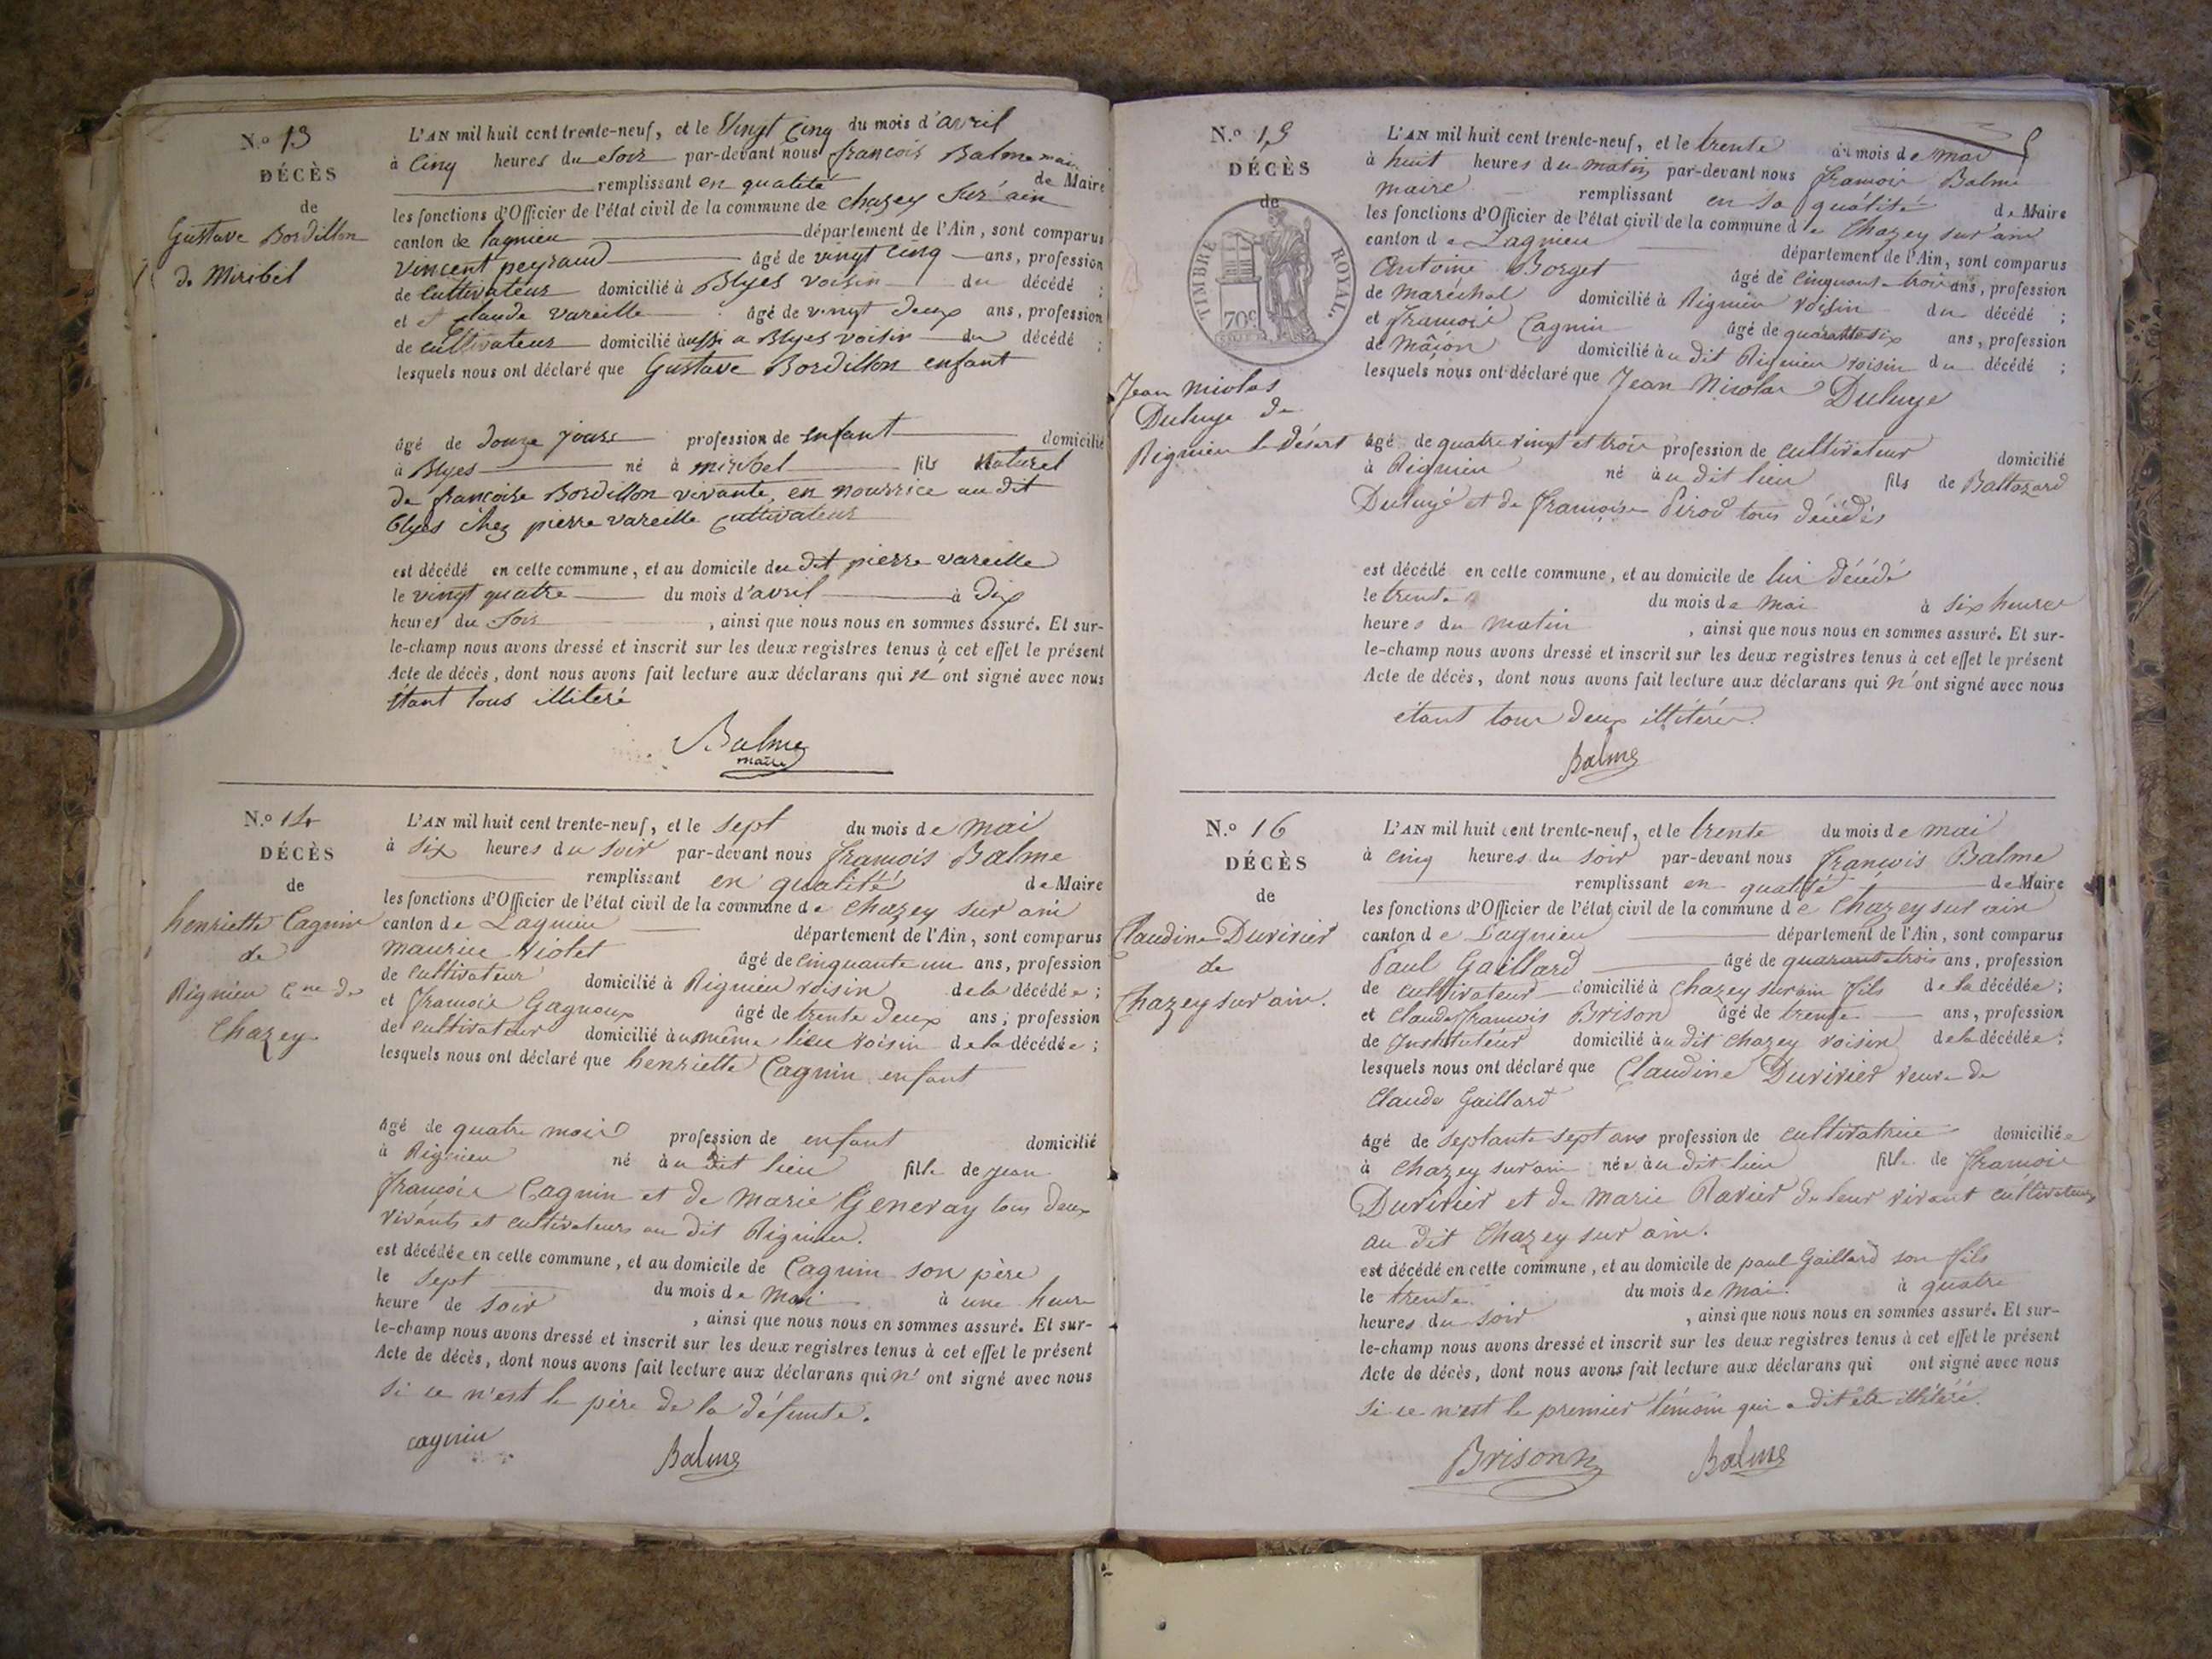 N.o 13
DÉCÈS
de
Gustave Bordillon
de Miribel
L'AN mil huit cent trente-neuf, et le Vingt Cinq du mois d'avril
à Cinq heures du soir par-devant nous françois Balme maire
remplissant en qualité de Maire
les fonctions d'Officier de l'état civil de la commune de chazey Sur ain
canton de lagnieu département de l'Ain, sont comparus
Vincent peyraud âgé de vingt cinq ans, profession
de Cultivateur domicilié à Blyes voisin du décédé ;
et claude vareille âgé de vingt deux ans, profession
de cultivateur domicilié aussi a Blyes voisin du décédé ;
lesquels nous ont déclaré que Gustave Bordillon enfant
âgé de douze jours profession de enfant domicilié
à Blyes né à miribel fils Naturel
de françoise Bordillon vivante, en nourrice au dit
Blyes chez pierre vareille cultivateur
est décédé en cette commune, et au domicile du dit pierre vareille
le vingt quatre du mois d'avril à Dix
heures du soir , ainsi que nous nous en sommes assuré. Et sur-
le-champ nous avons dressé et inscrit sur les deux registres tenus à cet effet le présent
Acte de décès, dont nous avons fait lecture aux déclarans qui n' ont signé avec nous
étant tous illiteré
Balme
maire
N.o 14
DÉCÈS
de
henriette Cagnin
de
Rignieu Cne de
Chazey
L'AN mil huit cent trente-neuf, et le sept du mois de mai
à six heures du soir par-devant nous françois Balme
remplissant en qualité de Maire
les fonctions d'Officier de l'état civil de la commune de chazey sur ain
canton de Lagnieu département de l'Ain, sont comparus
maurice Violet âgé de cinquante un ans, profession
de cultivateur domicilié à Rignieu voisin de la décédée ;
et françois Gagnoux âgé de trente deux ans, profession
de cultivateur domicilié au même lieu voisin de la décédée ;
lesquels nous ont déclaré que henriette Cagnin enfant
âgé de quatre mois profession de enfant domicilié
à Rignieu né au dit lieu fille de jean
françois Cagnin et de marie Genevay tous deux
vivants et cultivateurs au dit Rignieu.
est décédée en cette commune, et au domicile de Cagnin son père
le sept du mois de mai à une heure
heure de soir , ainsi que nous nous en sommes assuré. Et sur-
le-champ nous avons dressé et inscrit sur les deux registres tenus à cet effet le présent
Acte de décès, dont nous avons fait lecture aux déclarans qui n' ont signé avec nous
si ce n'est le père de la défunte.
cagnin Balme
N.o 15
DÉCÈS
de
TIMBRE ROYAL.
70c
Jean nicolas
Duluye de
Rignieu le désert
L'AN mil huit cent trente-neuf, et le trente du mois de mai
à huit heures du matin par-devant nous françois Balme
maire remplissant en sa qualité de Maire
les fonctions d'Officier de l'état civil de la commune de Chazey sur ain
canton de Lagnieu département de l'Ain, sont comparus
Antoine Borget âgé de cinquante trois ans, profession
de maréchal domicilié à Rignieu voisin du décédé ;
et françois Cagnin âgé de quarante six ans, profession
de mâçon domicilié au dit Rignieu voisin du décédé ;
lesquels nous ont déclaré que Jean Nicolas Duluye
âgé de quatre vingt et trois profession de cultivateur domicilié
à Rignieu né au dit lieu fils de Baltazard
Duluyé et de françoise Pirod tous décédés
est décédé en cette commune, et au domicile de lui décédé
le trente du mois de mai à six heures
heures du matin , ainsi que nous nous en sommes assuré. Et sur-
le-champ nous avons dressé et inscrit sur les deux registres tenus à cet effet le présent
Acte de décès, dont nous avons fait lecture aux déclarans qui n' ont signé avec nous
étant tous deux illitérés.
Balme
N.o 16
DÉCÈS
de
Claudine Duvivier
de
Chazey sur ain.
L'AN mil huit cent trente-neuf, et le trente du mois de mai
à cinq heures du soir par-devant nous françois Balme
remplissant en qualité de Maire
les fonctions d'Officier de l'état civil de la commune de Chazey sur ain
canton de Lagnieu département de l'Ain, sont comparus
Paul Gaillard âgé de quarante trois ans, profession
de cultivateur domicilié à Chazey sur ain fils de la décédée ;
et Claude françois Brison âgé de trente ans, profession
de Instituteur domicilié au dit chazey voisin de la décédée ;
lesquels nous ont déclaré que Claudine Duvivier veuve de
Claude Gaillard
âgé de septante sept ans profession de cultivatrice domiciliée
à Chazey sur ain née au dit lieu fille de françois
Duvivier et de marie Ravier de leur vivant cultivateurs
au dit Chazey sur ain.
est décédé en cette commune, et au domicile de paul Gaillard son fils
le trente du mois de mai à quatre
heures du soir , ainsi que nous nous en sommes assuré. Et sur-
le-champ nous avons dressé et inscrit sur les deux registres tenus à cet effet le présent
Acte de décès, dont nous avons fait lecture aux déclarans qui ont signé avec nous
si ce n'est le premier témoin qui a dit être illétéré.
Brison Balme